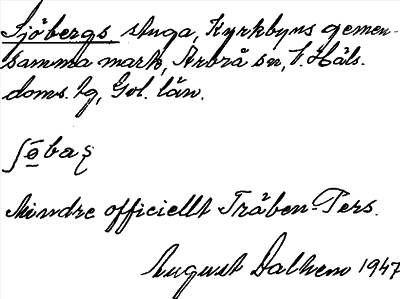 Sjöbergs stuga, Kyrkbyns gemen-
samma mark, Arbrå sn, V. Häls.
doms. lg, Gvl. län.
ʃö̱baṣ
Mindre officiellt Träben-Pers.
August Dalhem 1947